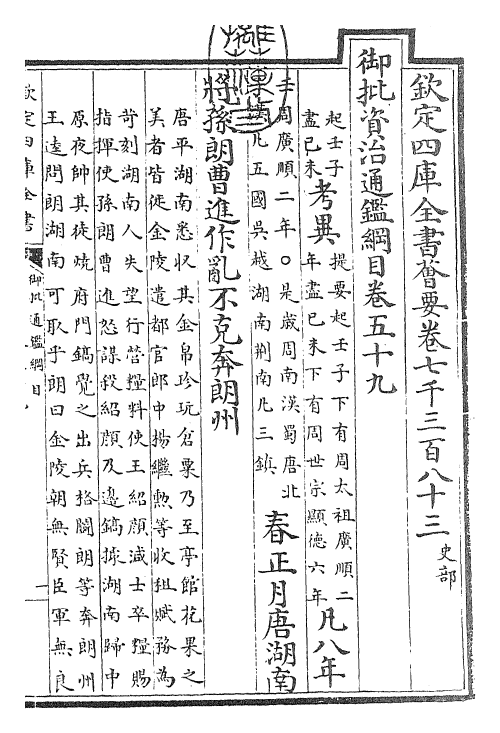 欽定四庫全書薈要卷七千三百八十三 史部
御批資治通鑑綱目卷五十九
起壬子
盡己未
考異
提要起壬子下有周太祖廣順二
年盡己未下有周世宗顯德六年
凡八年
壬子
周廣順二年○是歲周南漢蜀唐北
漢凡五國吳越湖南荆南凡三鎮
春正月唐湖南
將孫朗曹進作亂不克奔朗州
唐平湖南悉収其金帛珍玩倉粟乃至亭館花果之
美者皆徙金陵遣都官郎中楊繼勲等收租賦務為
苛刻湖南人失望行營糧料使王紹顔減士卒糧賜
指揮使孫朗曹進怒謀殺紹顔及邊鎬據湖南歸中
原夜帥其徒燒府門鎬覺之出兵格鬬朗等奔朗州
王逵問朗湖南可取乎朗曰金陵朝無賢臣軍無良
欽定四庫全書
御批通鑑綱目